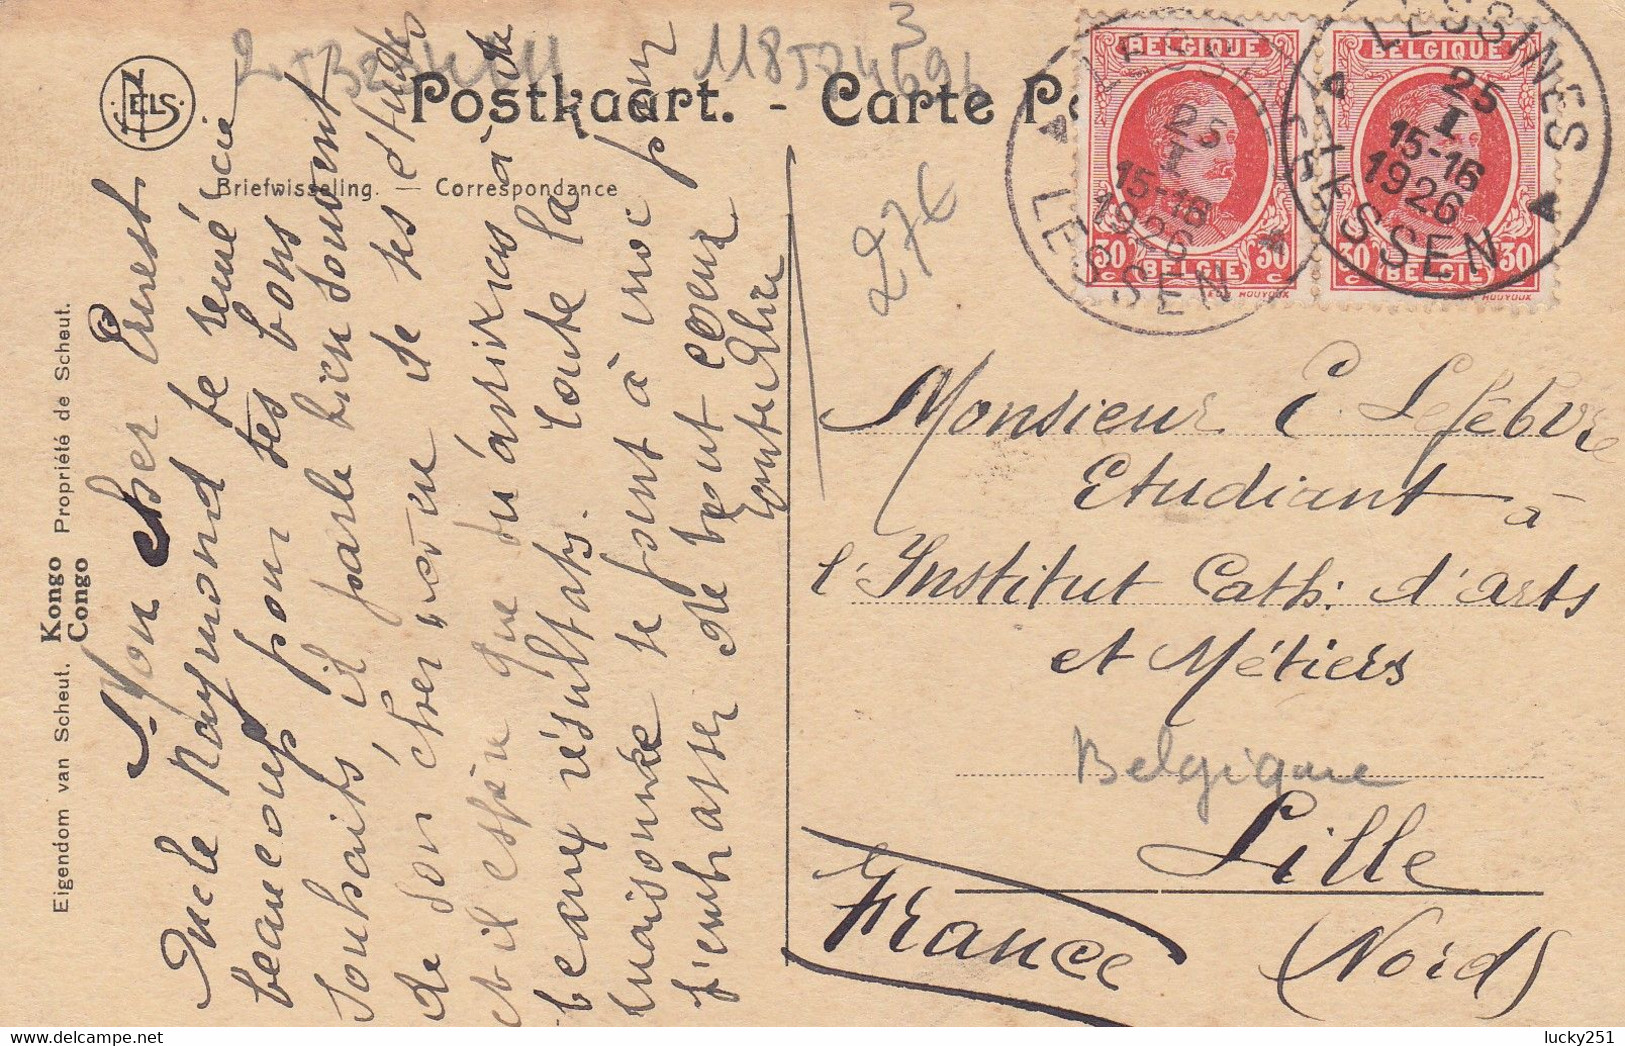 NELS
Postkaart. - Carte Po
Briefwisseling. — Correspondance
Eigendom van Scheut. Kongo Propriété de Scheut.
Congo
Mon cher Ernest
Oncle Raymond te remércie
beaucoup pour tes bons
souhaits il parle bien souvent
de son cher neveu de ses études
et il espère que tu arriveras à de
beaux résultats. Toute la
maisonnée se joint à moi pour
t'embrasser de tout coeur
BELGIQUE
30 30
BELGIE
HOUYOUX
BELGIQUE
30 30
BELGIE
HOUYOUX
LESSINES
25
I
15-16
1926
LESSEN
LESSINES
25
I
15-16
1926
LESSEN
27€
Monsieur E. Lefèbvre
Etudiant à
l'Institut Cath: d'arts
et Métiers
Belgique
Lille
France (Nord)
lucky251